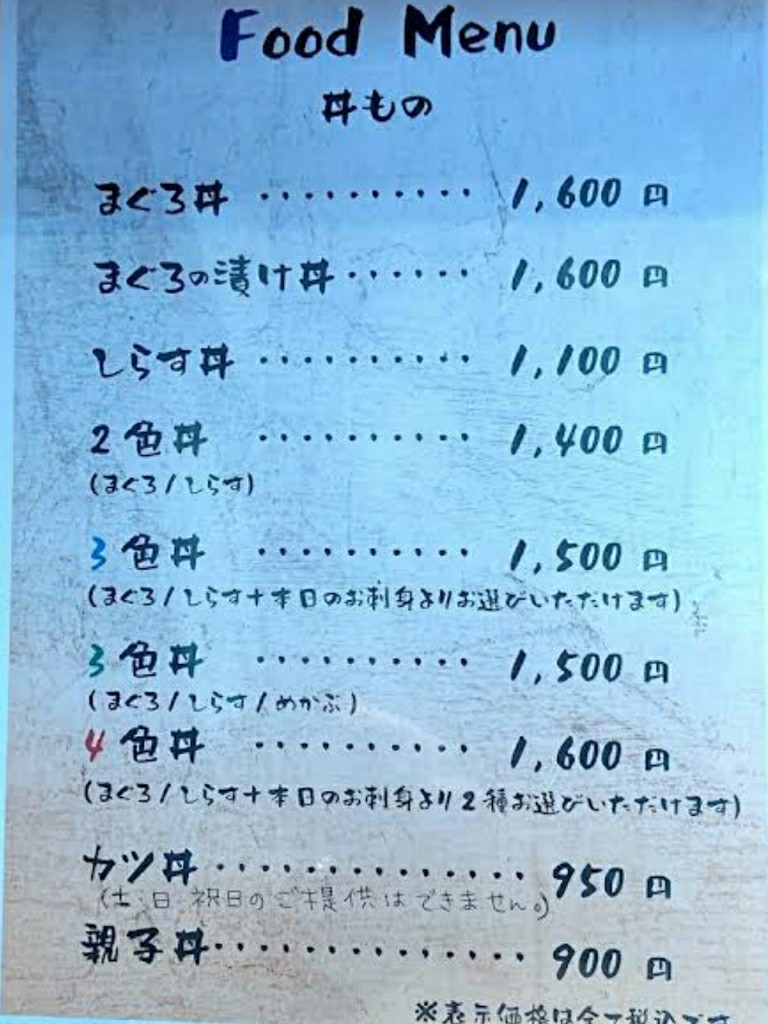 Food Menu
丼もの
まぐろ丼 ・・・・・・・・・・ 1,600 円
まぐろの漬け丼・・・・・・ 1,600 円
しらす丼 ・・・・・・・・・・ 1,100 円
2色丼 ・・・・・・・・・・ 1,400 円
(まぐろ/しらす)
3色丼 ・・・・・・・・・・ 1,500 円
(まぐろ/しらす+本日のお刺身よりお選びいただけます)
3色丼 ・・・・・・・・・・ 1,500 円
(まぐろ/しらす/めかぶ)
4色丼 ・・・・・・・・・・ 1,600 円
(まぐろ/しらす+本日のお刺身より2種お選びいただけます)
カツ丼・・・・・・・・・・・・・・ 950 円
(土・日 祝日のご提供はできません。)
親子丼・・・・・・・・・・・・・・ 900 円
※表示価格は全て税込です